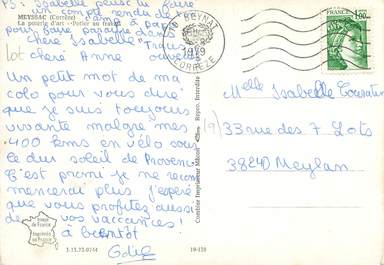 PS: Isabelle peux tu faire
un compte rendu de
MEYSSAC (Corrèze)
La poterie d'art - Potier au travail
pour faire paraître dans
chère Isabelle
chère Anne
Un petit mot de ma
colo pour vous dire
que je suis toujours
vivante malgré mes
400 kms en vélo sous
le dur soleil de Provence
C'est promis je ne recom
mencerai plus j'espère
que vous profitez aussi
de vos vacances!
à bientôt
Odile
image
de France
Imprimée
en France
3.15.73.0744
19-128
Combier Imprimeur Mâcon
Repro. Interdite
19 BEYNAT
1979
CORREZE
FRANCE
1,00
Melle Isabelle
33 rue des 7 Lots
38240 Meylan